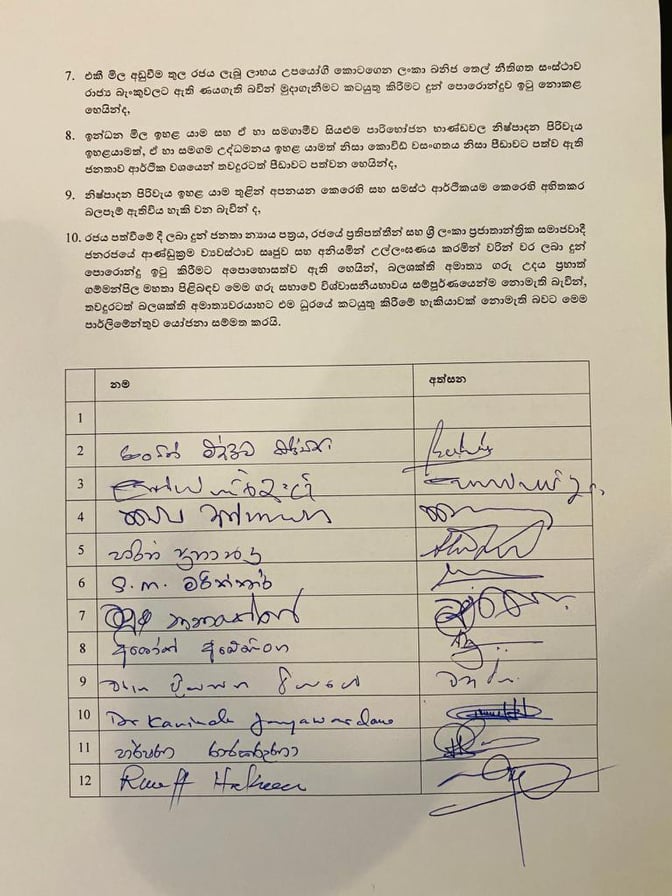 7. එකී මිල අඩුවීම තුල රජය ලැබූ ලාභය උපයෝගී කොටගෙන ලංකා ඛනිජ තෙල් නීතිගත සංස්ථාව
රාජ්‍ය බැංකුවලට ඇති ණයගැති බවින් මුදාගැනීමට කටයුතු කිරීමට දුන් පොරොන්දුව ඉටු නොකළ
හෙයින්ද,
8. ඉන්ධන මිල ඉහළ යාම සහ ඒ හා සමගාමීව සියළුම පාරිභෝජන භාණ්ඩවල නිෂ්පාදන පිරිවැය
ඉහළයාමත්, ඒ හා සමගම උද්ධමනය ඉහළ යාමත් නිසා කොවිඩ් වසංගතය නිසා පීඩාවට පත්ව ඇති
ජනතාව ආර්ථික වශයෙන් තවදුරටත් පීඩාවට පත්වන හෙයින්ද,
9. නිෂ්පාදන පිරිවැය ඉහළ යාම තුළින් අපනයන කෙරෙහි සහ සමස්ථ ආර්ථිකයම කෙරෙහි අහිතකර
බලපෑම් ඇතිවිය හැකි වන බැවින් ද,
10. රජය පත්වීමේ දී ලබා දුන් ජනතා න්‍යාය පත්‍රය, රජයේ ප්‍රතිපත්තීන් සහ ශ්‍රී ලංකා ප්‍රජාතාන්ත්‍රික සමාජවාදී
ජනරජයේ ආණ්ඩුක්‍රම ව්‍යවස්ථාව සෘජුව සහ අනියමින් උල්ලංඝණය කරමින් වරින් වර ලබා දුන්
පොරොන්දු ඉටු කිරීමට අපොහොසත්ව ඇති හෙයින්, බලශක්ති අමාත්‍ය ගරු උදය ප්‍රභාත්
ගම්මන්පිල මහතා පිළිබඳව මෙම ගරු සභාවේ විශ්වාසනීයභාවය සම්පූර්ණයෙන්ම නොමැති බැවින්,
තවදුරටත් බලශක්ති අමාත්‍යවරයාහට එම ධුරයේ කටයුතු කිරීමේ හැකියාවක් නොමැති බවට මෙම
පාර්ලිමේන්තුව යෝජනා සම්මත කරයි.
නම අත්සන
1
2
3
4
5 හරින් ප්‍රනාන්දු
6 S.M. මරික්කාර්
7
8 අශෝක් අබේසිංහ
9
10 Dr Kavinda Jayawardana
11
12 Rauff Hakeem